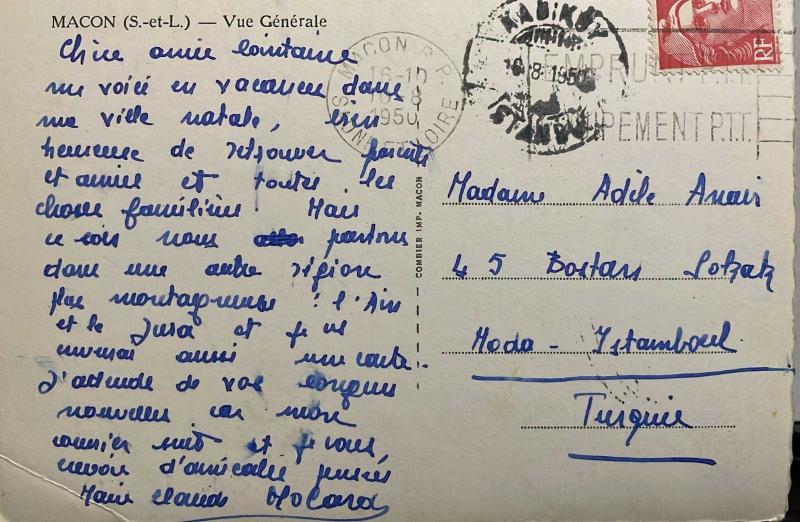 MACON (S.-et-L.) — Vue Générale
Chère amie lointaine
me voici en vacances dans
ma ville natale, bien
heureuse de retrouver parents
et amis et toutes les
choses familières. Mais
ce soir nous partons
dans une autre région
plus montagneuse : l'Ain
et le Jura et je vous
enverrai aussi une carte.
J'attends de vos longues
nouvelles car mon
courrier suit et je vous
envoie d'amicales pensées
Marie Claude Molard
COMBIER IMP. MACON
MACON R.P.
16-10
16-8
1950
SAONE ET LOIRE
KADIKÖY
16.8.1950
ISTANBUL
EMPRUNT P.T.T.
EQUIPEMENT P.T.T.
RF
Madame Adèle Anais
45 Bostan Sokak
Moda - Istamboul
Turquie